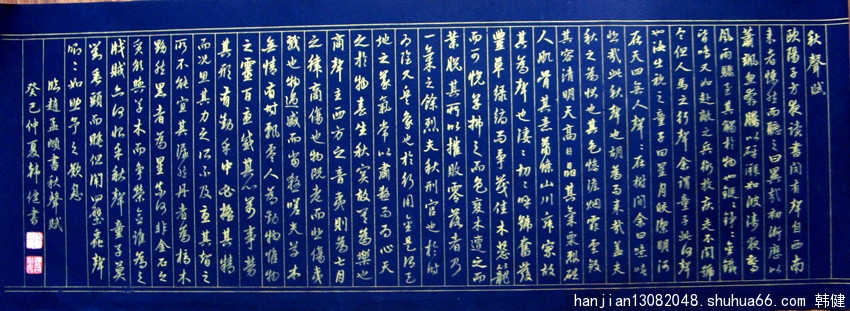 秋聲賦
歐陽子方夜讀書聞有聲自西南
來者悚然而聽之曰異哉初淅瀝以
蕭颯忽奔騰以砰湃如波濤夜驚
風雨驟至其觸於物也鏦鏦錚錚金鐵
皆鳴又如赴敵之兵銜枚疾走不聞號
令但人馬之行聲余謂童子此何聲
也汝出視之童子曰星月皎潔明河
在天四無人聲聲在樹間余曰噫嘻
悲哉此秋聲也胡為而來哉蓋夫
秋之為狀也其色慘澹煙霏雲斂
其容清明天高日晶其氣栗冽砭
人肌骨其意蕭條山川寂寥故
其為聲也淒淒切切呼號奮發
豐草綠縟而爭茂佳木葱籠
而可悅草拂之而色變木遭之而
葉脫其所以摧敗零落者乃
一氣之餘烈夫秋刑官也於時
為陰又兵象也於行用金是謂天
地之義氣常以肅殺而為心天
之於物春生秋實故其在樂也
商聲主西方之音夷則為七月
之律商傷也物既老而悲傷夷
戮也物過盛而當殺嗟夫草木
無情有時飄零人為動物惟物
之靈百憂感其心萬事勞
其形有動乎中必搖其精
而況思其力之所不及憂其智之
所不能宜其渥然丹者為槁木
黟然黑者為星星奈何非金石之
質欲與草木而爭榮念誰為之
戕賊亦何恨乎秋聲童子莫
對垂頭而睡但聞四壁蟲聲
唧唧如助予之歎息
臨趙孟頫書秋聲賦
癸巳仲夏韓健書
hanjian13082048.shuhua66.com 韩健